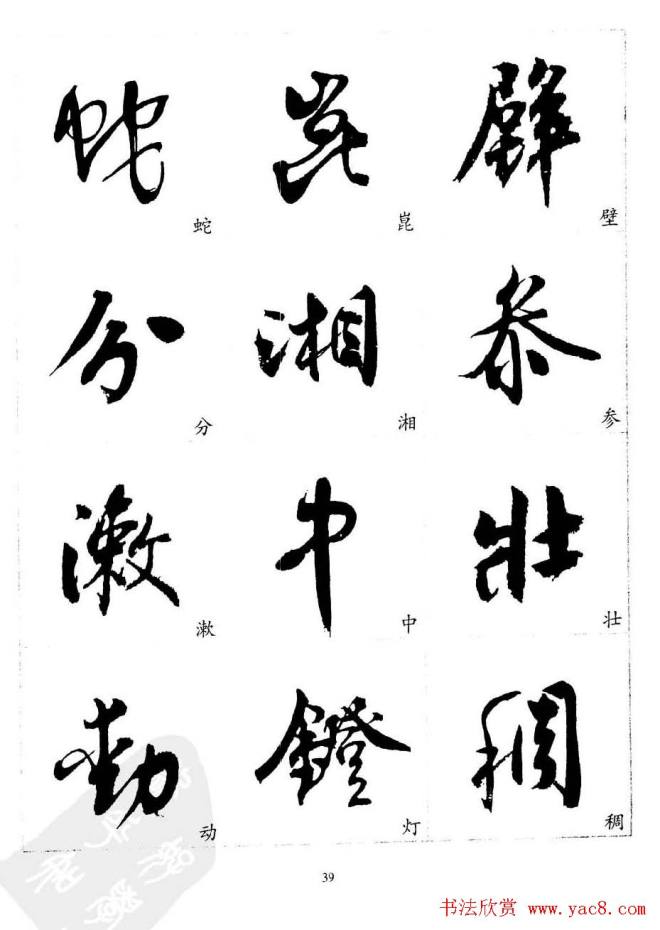 璧 崑 蛇
壁 崑 蛇
参 湘 分
参 湘 分
壮 中 漱
壮 中 漱
稠 镫 动
稠 灯 动
39
书法欣赏 www.yac8.com